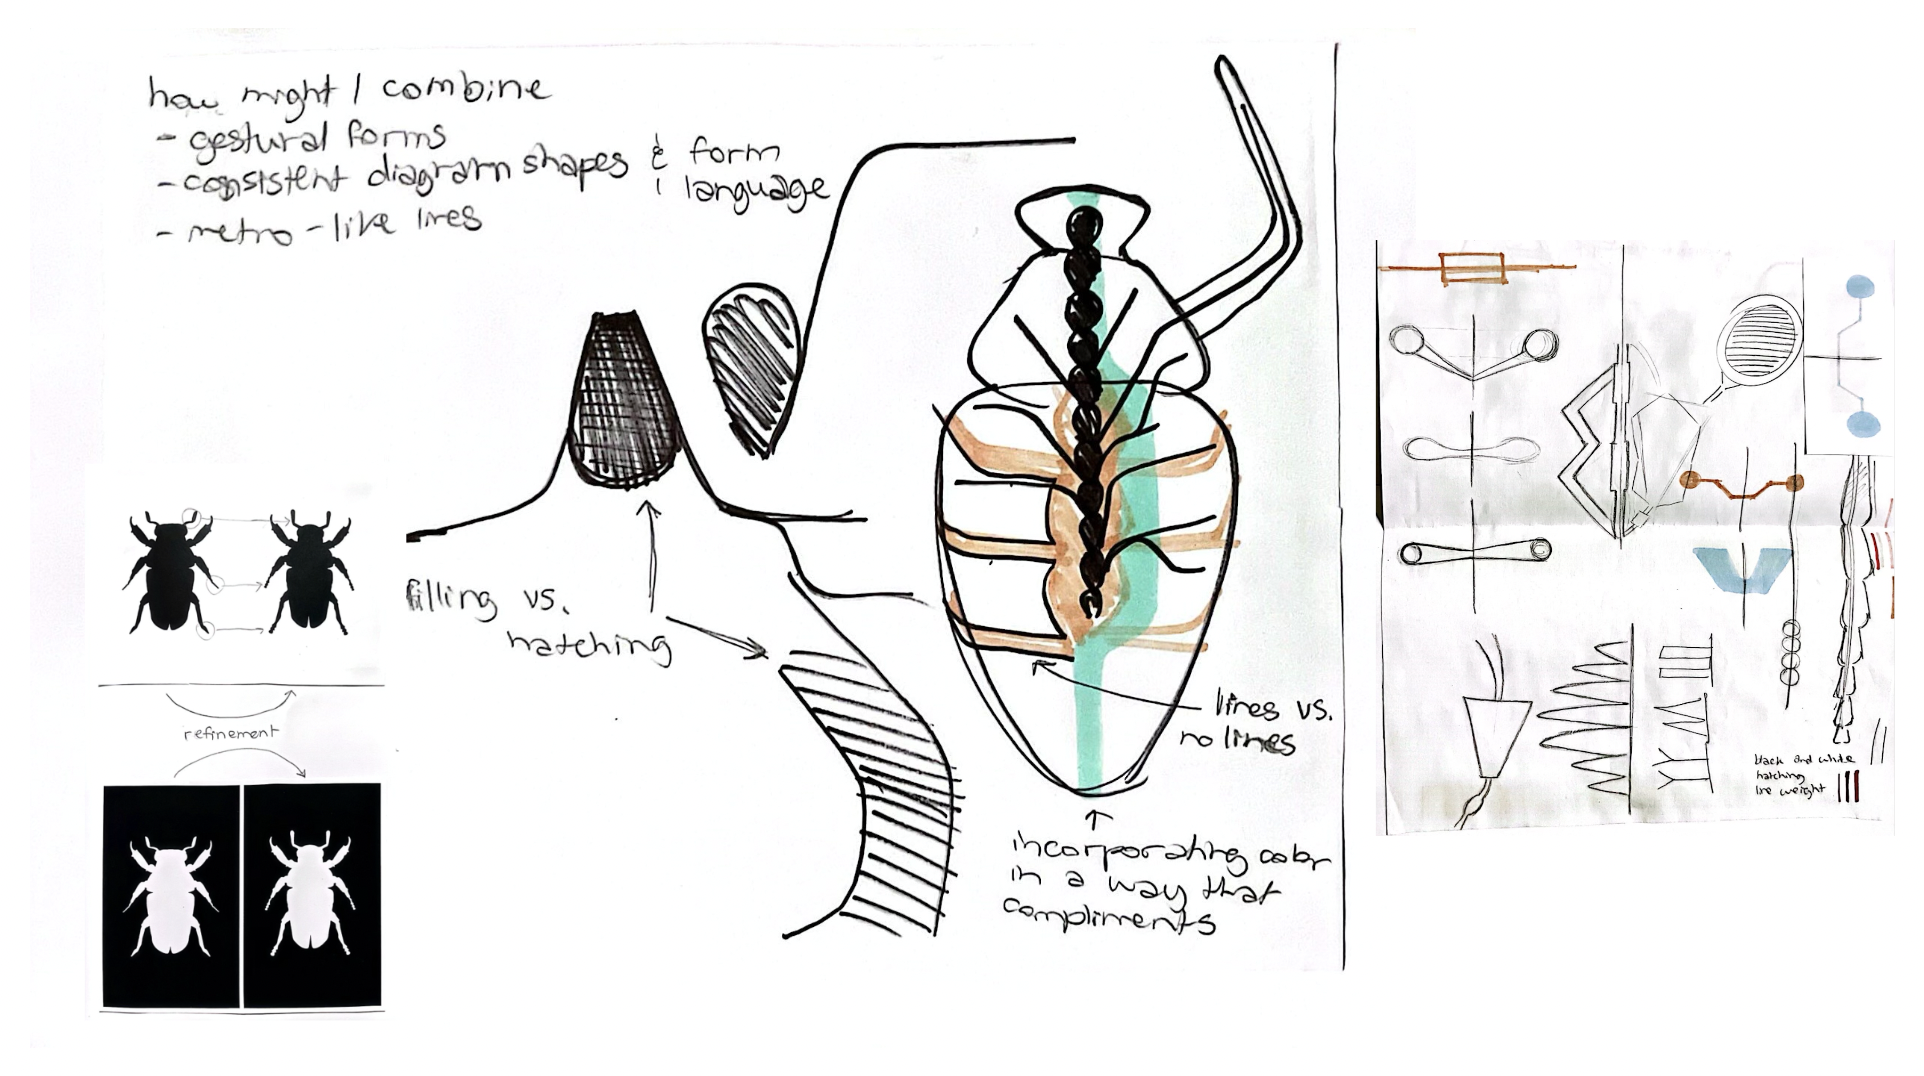 how might I combine
- gestural forms
- consistent diagram shapes & form language
- metro-like lines
filling vs.
hatching
refinement
lines vs.
no lines
incorporating color
in a way that
compliments
black and white
hatching
line weight